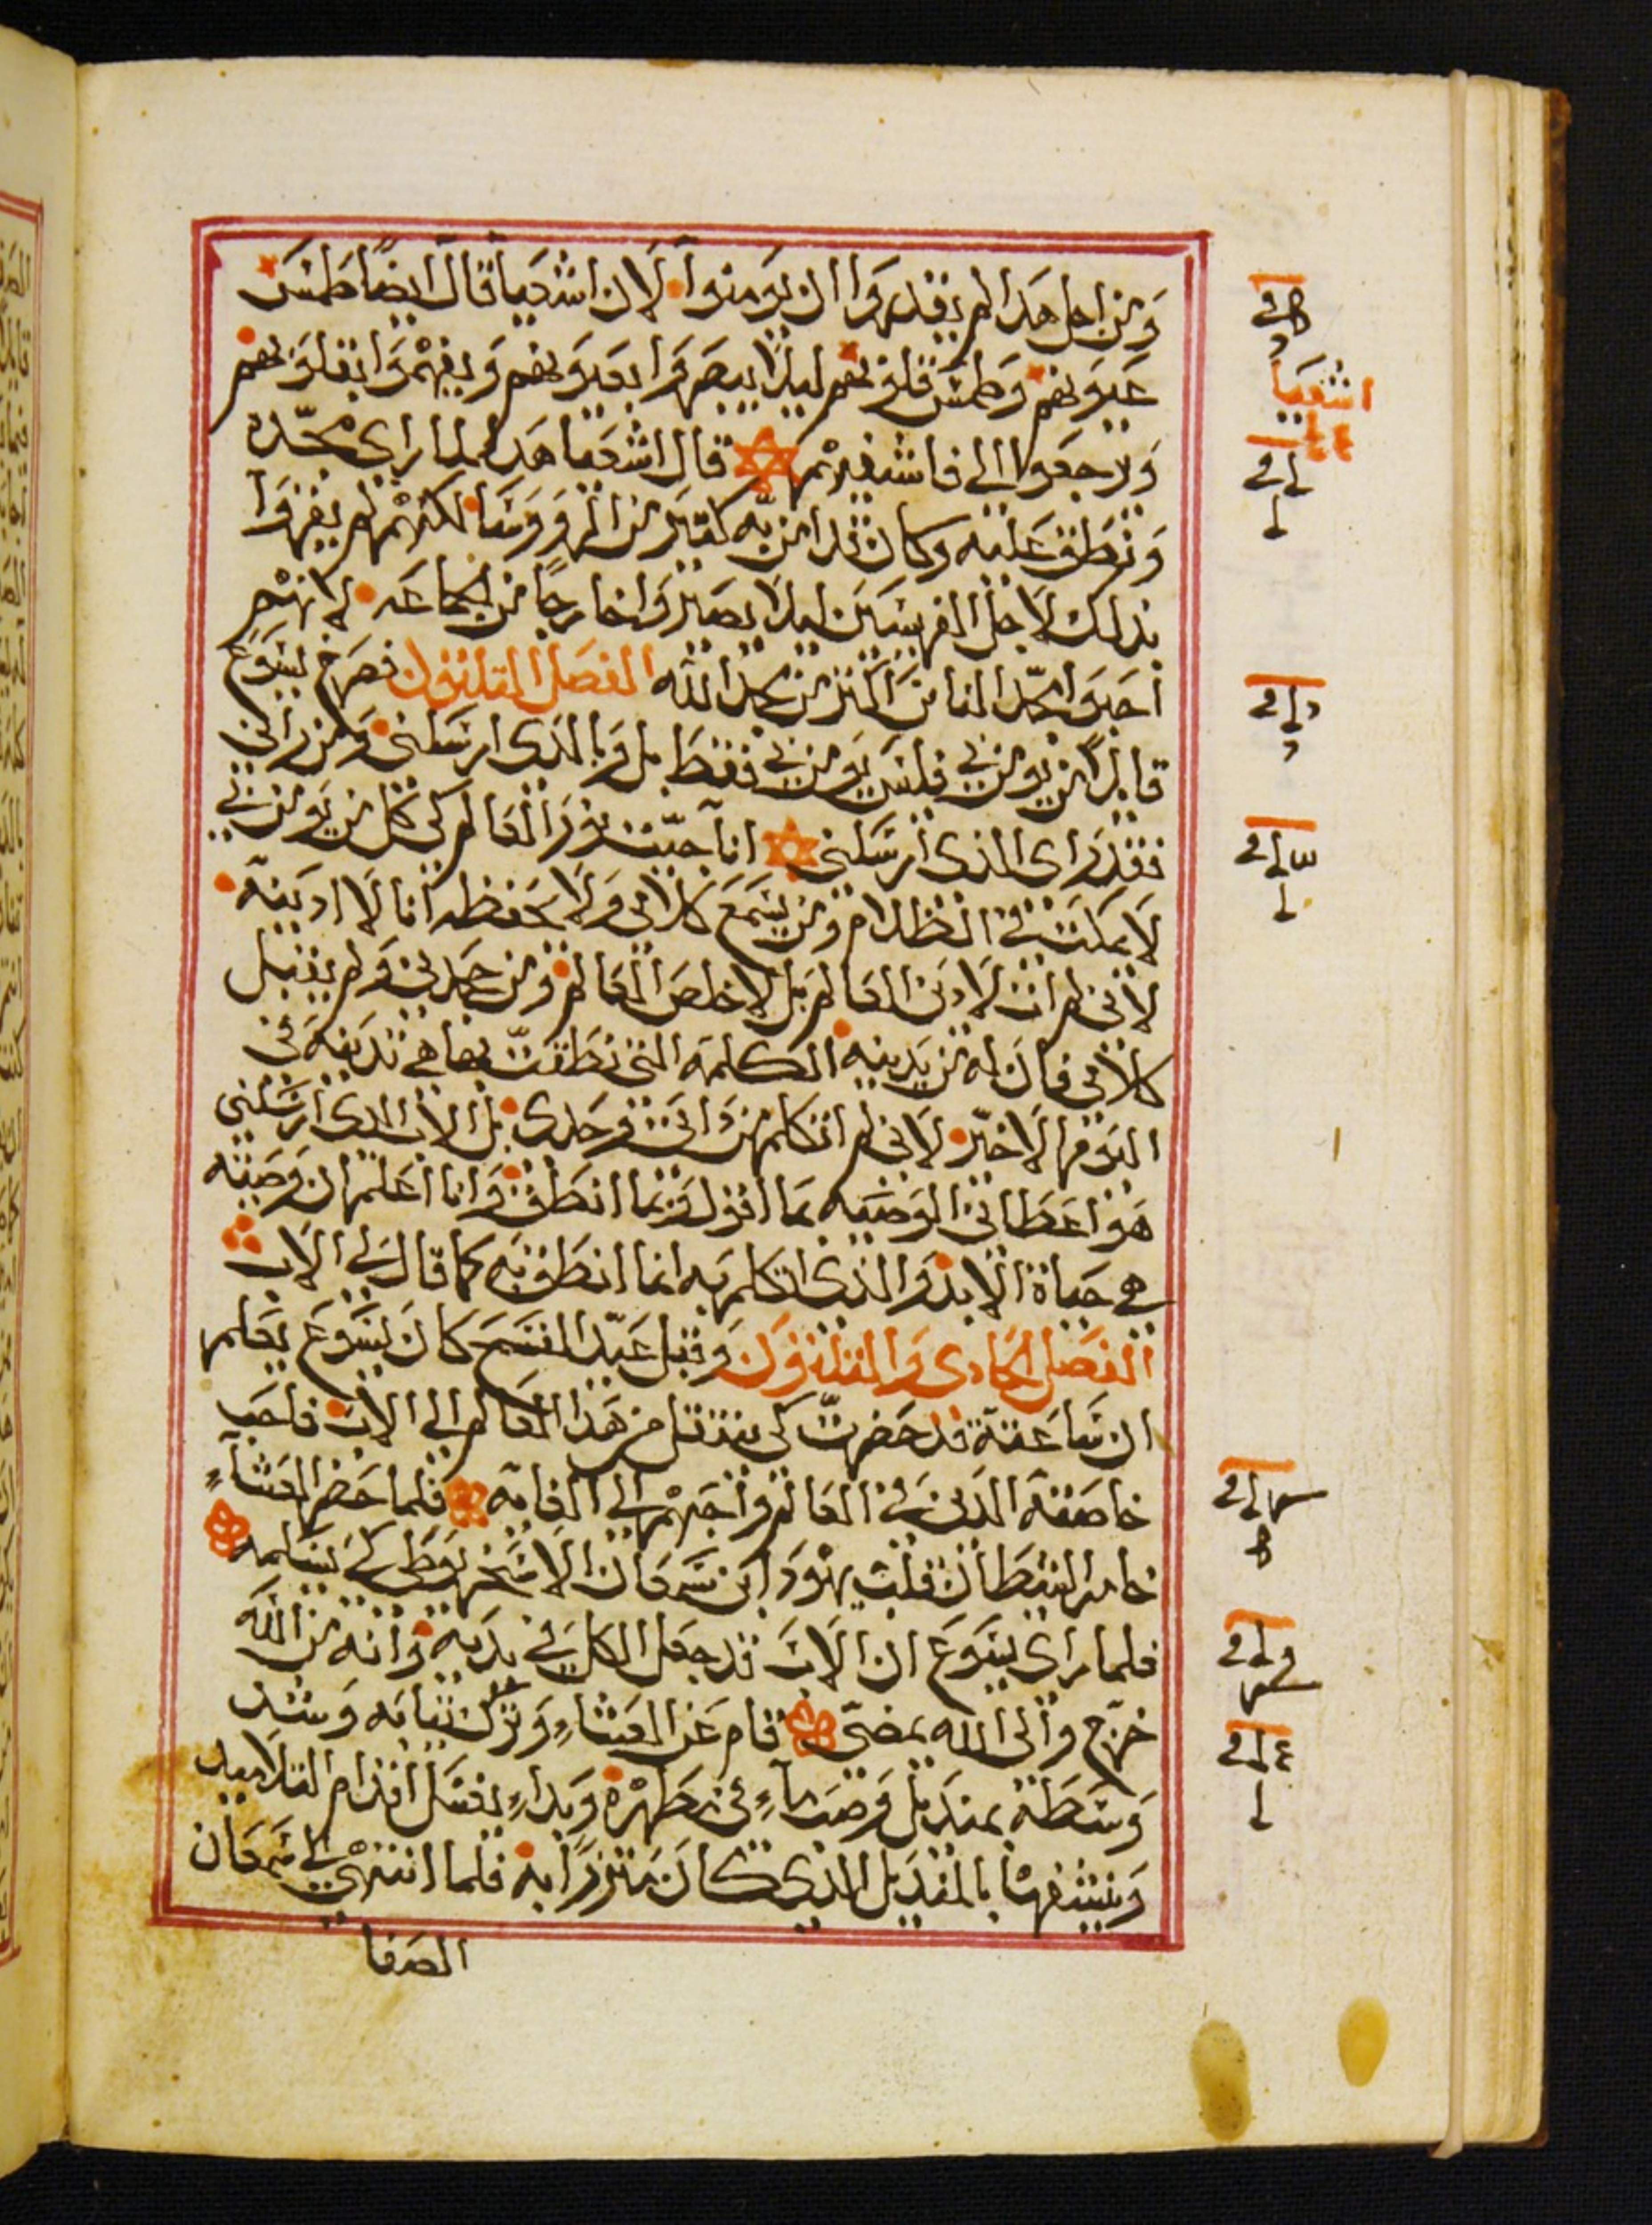 ومن اجل هدا لم يقدروا ان يومنوا لان اشعيا قال ايضًا طمس
عيونهم وطمس قلوبهم ليلا يبصروا بعيونهم ويفهموا بقلوبهم
ويرجعوا الي فاشفيهم قال اشعيا هدا لما راى مجده
ونطق عليه وكان قد امن به كتير من الرووسا لكنهم لم يقروا
بدلك لاجل الفريسيين ليلا يصيروا خارجًا من الجماعه لانهم
احبوا مجد الناس اكتر من مجد الله الفصل التلتون فصرخ يسوع
قايلا من يومن بي فليس يومن بي فقط بل وبالدى ارسلني ومن راني
فقد راى الدى ارسلني انا جيت نور العالم كي كل من يومن بي
لا يمكت في الظلام ومن يسمع كلامي ولا يحفظه انا لا ادينه
لاني لم ات لادين العالم بل لاخلص العالم ومن جحدني ولم يقبل
كلامي فان له من يدينه الكلمه التي نطقت بها هي تدينه في
اليوم الاخير لاني لم اتكلم من داتي وحدى بل الاب الدى ارسلني
هو اعطاني الوصيه بما اقول وبما انطق وانا اعلم ان وصيته
هي حياة الابد والدى اتكلم به انما انطق به كما قال لي الاب
الفصل الحادى والتلتون وقبل عيد الفسح كان يسوع يعلم
ان ساعته قد حضرت كي ينتقل من هدا العالم الى الاب فاحب
خاصته الدين في العالم واحبهم الي الغايه فلما حضر العشاء
خامر الشيطان قلب يهودا ابن سمعان الاسخريوطي لكي يسلمه
فلما راى يسوع ان الاب قد جعل الكل في يديه وانه من الله
خرج والى الله يمضي قام عن العشاء وترك تيابه وشد
وسطه بمنديل وصب ماء في مطهره وبداء يغسل اقدام التلاميد
وينشفها بالمنديل الدى كان متزرًا به فلما انتهى الي سمعان
الصفا
اشعيا